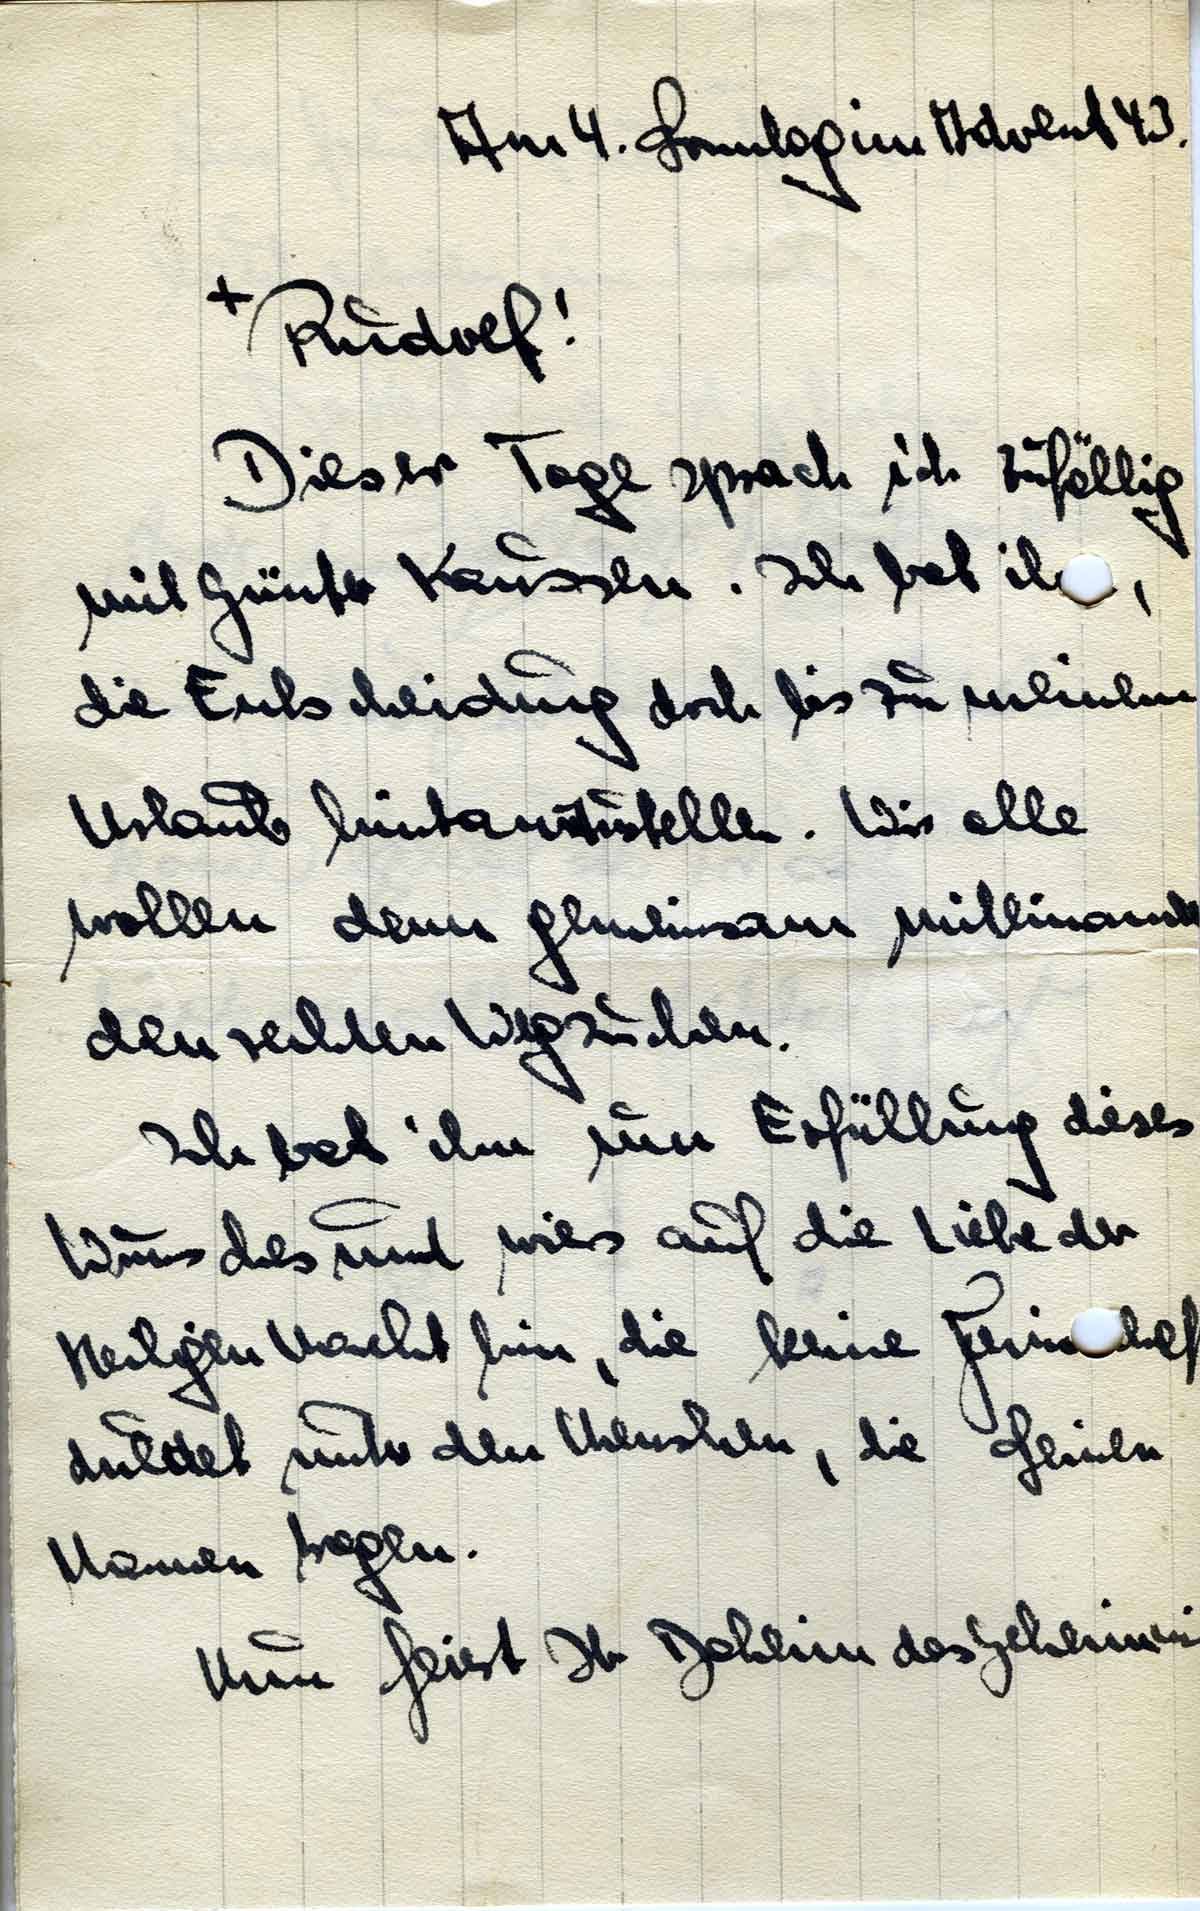 Am 4. Sonntag im Advent 43.
+ Rudolf!
Dieser Tage sprach ich zufällig
mit Günter Kaussen. Ich bat ihn,
die Entscheidung doch bis zu meinem
Urlaub hintanzustellen. Wir alle
wollen dann gemeinsam miteinander
den rechten Weg suchen.
Ich bat ihn um Erfüllung dieses
Wunsches und wies auf die Liebe der
Heilgen Nacht hin, die keine Feindschaft
duldet unter den Menschen, die Seinen
Namen tragen.
Nun feiert Ihr Daheim das Geheimnis